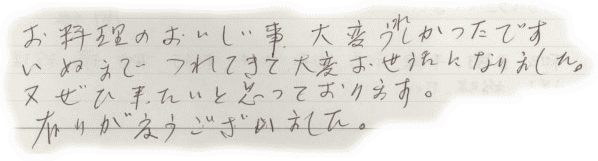 お料理のおいしい事 大変うれしかつたです
いぬまでつれてきて大変おせわになりました。
又ぜひ来たいと思っております。
有りがとうございました。